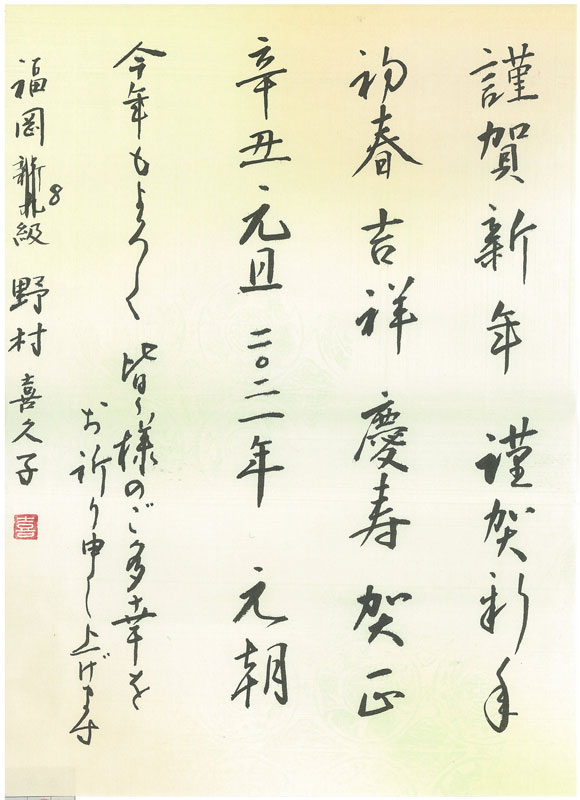 謹賀新年 謹賀新年
初春 吉祥 慶寿 賀正
辛丑元旦 二〇二一年 元朝
今年もよろしく 皆々様のご多幸を
お祈り申し上げます
福岡 8級 野村喜久子
喜